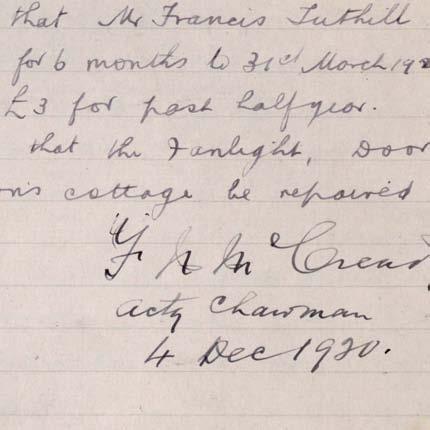 that Mr Francis Tuthill
for 6 months to 31st March 192
£3 for past half year.
that the Fanlight, Door
on's cottage be repaired
McCread
Actg Chairman
4 Dec 1920.